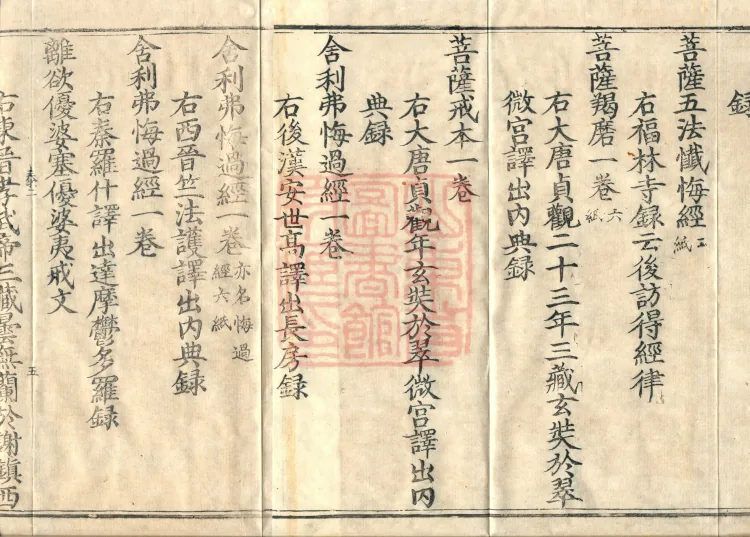 録
菩薩五法懺悔經 五紙
右福林寺録云後訪得經律
菩薩羯磨一卷 六紙
右大唐貞觀二十三年三藏玄奘於翠
微宫譯出内典録
菩薩戒本一卷
右大唐貞觀年玄奘於翠微宫譯出内
典録
舍利弗悔過經一卷
右後漢安世高譯出長房録
舍利弗悔過經一卷 亦名悔過經六紙
右西晉竺法護譯出内典録
舍利弗悔過經一卷
右秦羅什譯出達摩欝多羅録
離欲優婆塞優婆夷戒文
五
右東晉孝武帝三藏曇無蘭於謝鎮西